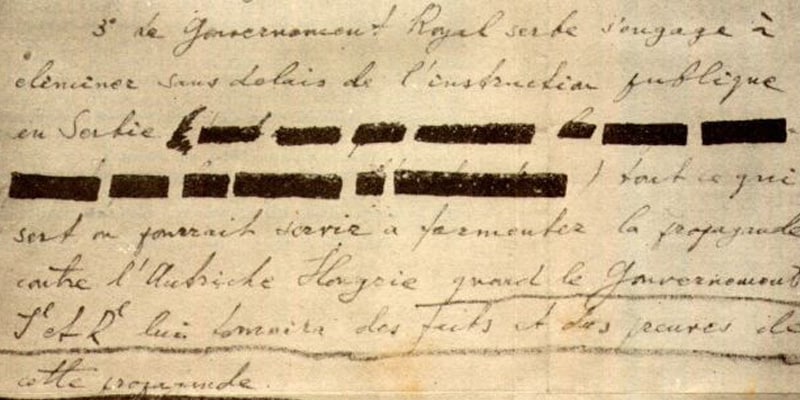 3° Le Gouvernement Royal serbe s'engage à
eliminer sans delais de l'instruction publique
en Serbie (
) tout ce qui
sert ou pourrait servir a fermenter la propagande
contre l'Autriche Hongrie quand le Gouvernement
I et R lui
des faits et des preuves de
cette propagande.